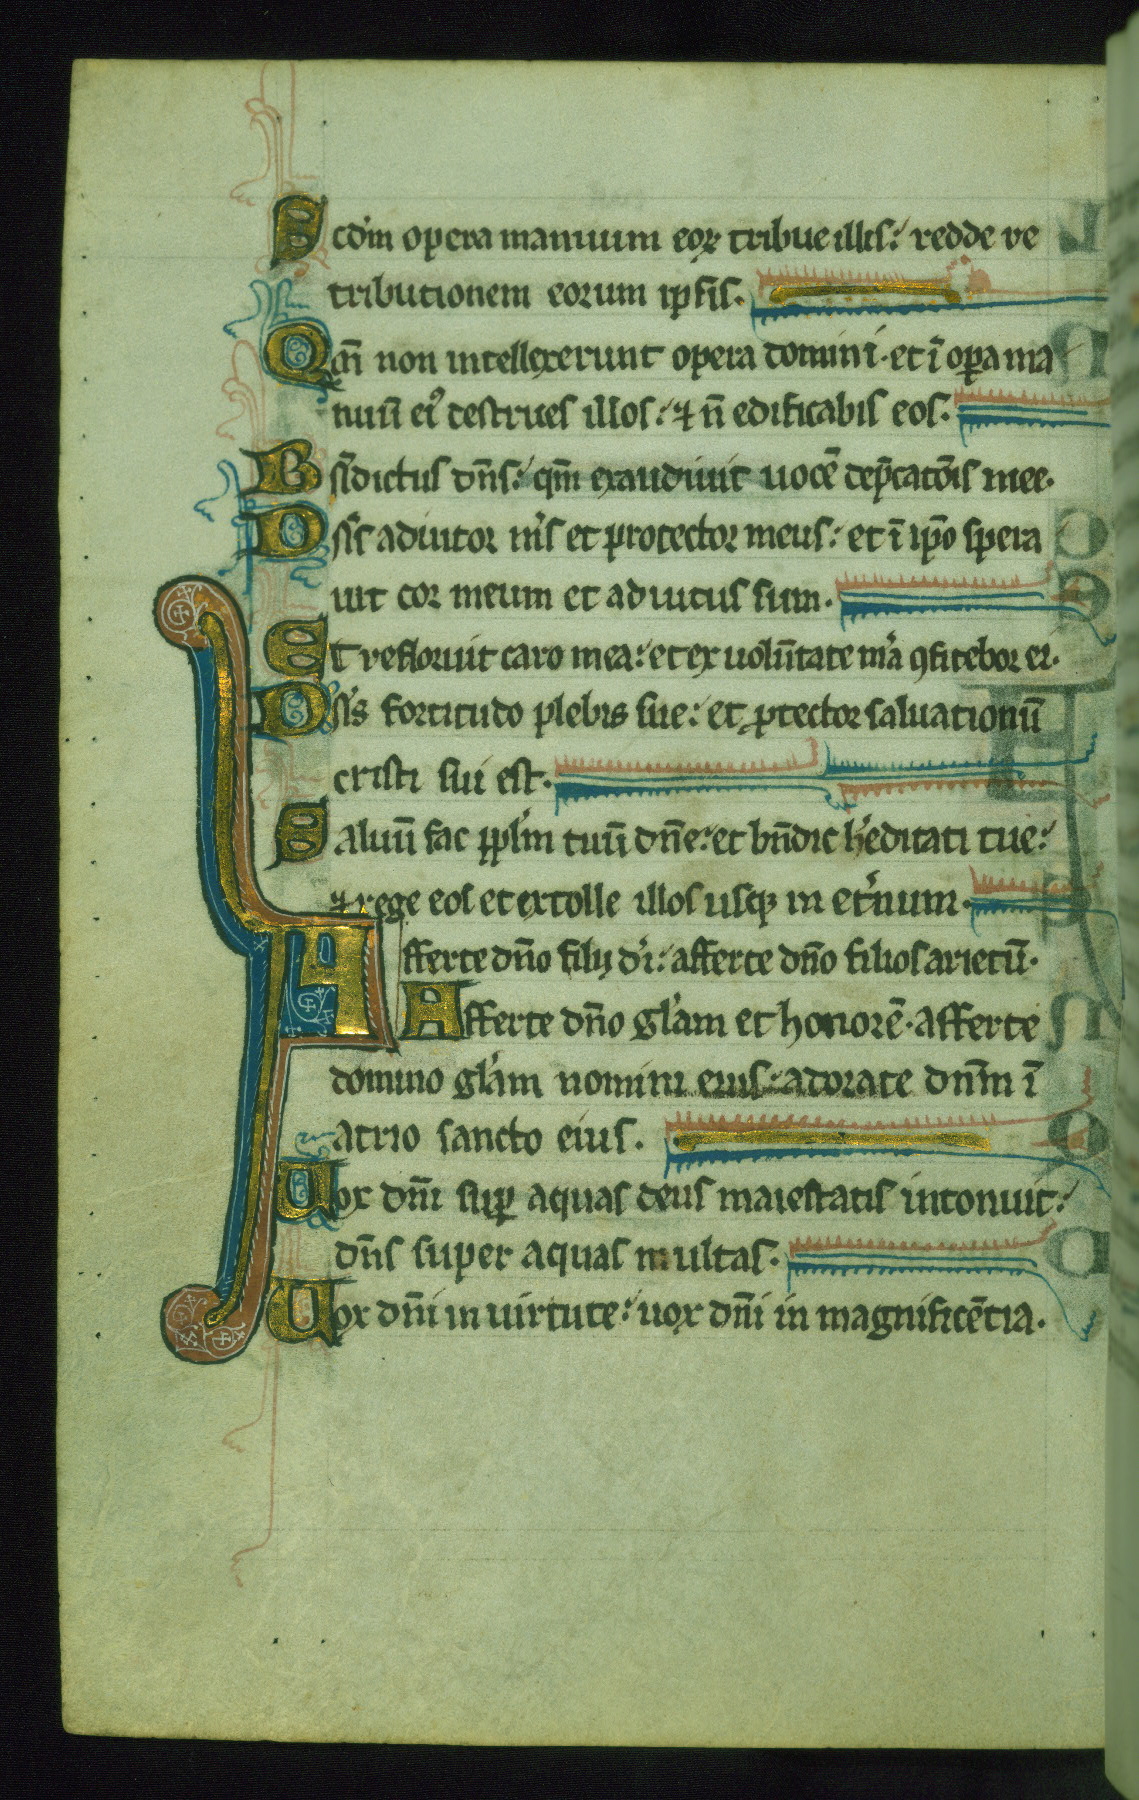 Scd'm opera manuum eoꝝ tribue illis: redde re
tributionem eorum ipsis.
Qm̄ non intellexerunt opera domini. et ī oꝑa ma
nuū ei' destrues illos: ⁊ n̄ edificabis eos.
Bn̄dictus dn̄s: qm̄ exaudiuit uocē dep̄catōis mee.
Dn̄s adiutor m's et protector meus: et ī ip̄o spera
uit cor meum et adiutus sum.
Et refloruit caro mea: et ex uolūtate m̄a ꝯfitebor ei.
Dn̄s fortitudo plebis sue: et ꝓtector saluationū
cristi sui est.
Saluū fac pp̄lm tuū dn̄e: et bn̄dic h'editati tue:
⁊ rege eos et extolle illos usqꝫ in et'num.
Afferte dn̄o filij d'i: afferte dn̄o filios arietū.
Afferte dn̄o gl'am et honorē. afferte
domino gl'am nomini eius: adorate dn̄m ī
atrio sancto eius.
Uox dn̄i suꝑ aquas deus maiestatis intonuit:
dn̄s super aquas multas.
Uox dn̄i in uirtute: uox dn̄i in magnificētia.